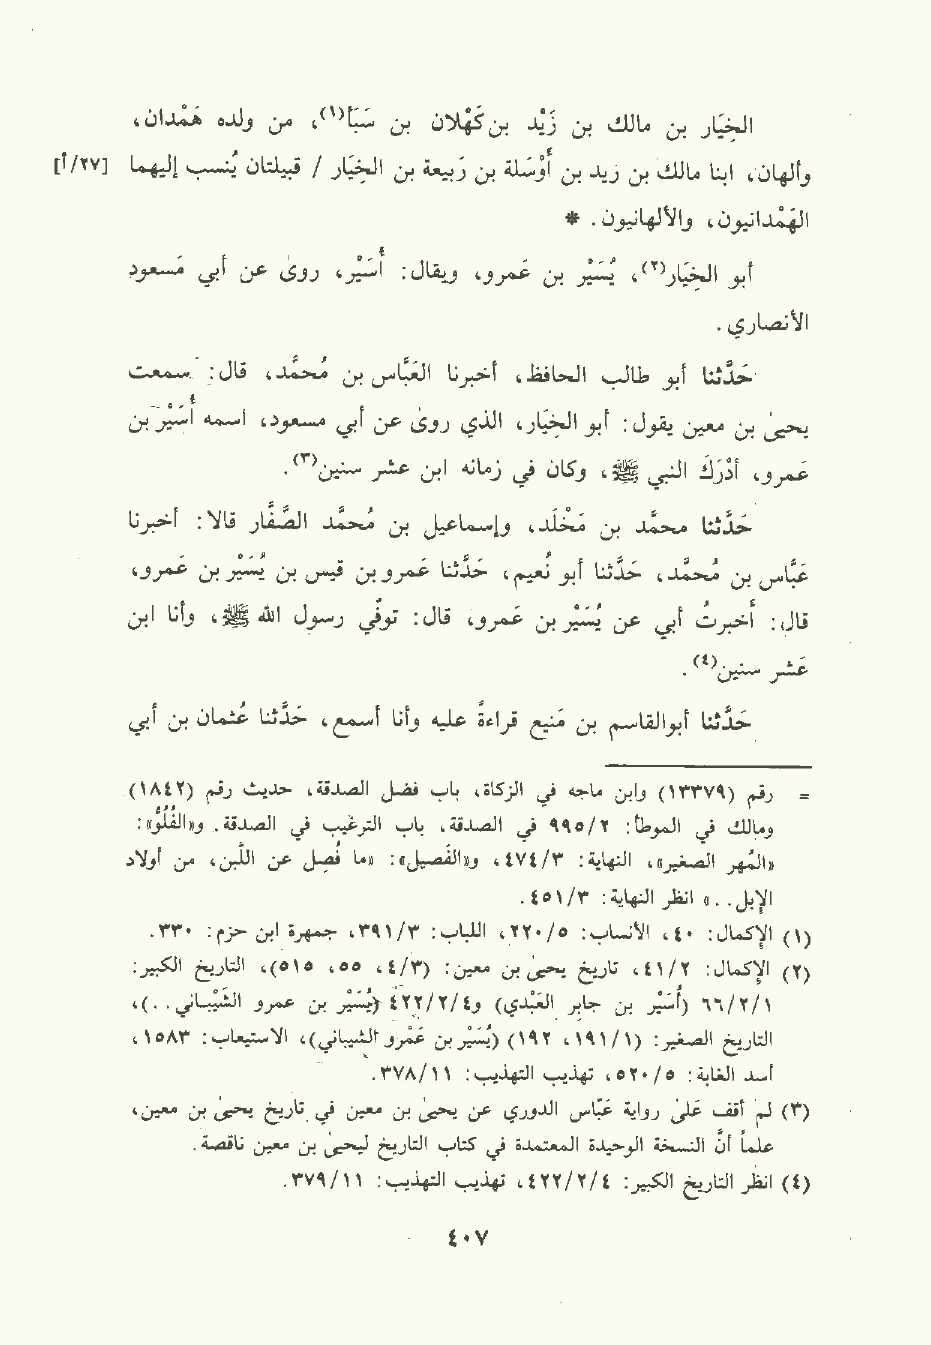 الخِيَار بن مالك بن زَيْد بن كَهْلان بن سَبَأ(١)، من ولده هَمْدان،
وألهان، ابنا مالك بن زيد بن أَوْسَلة بن رَبيعة بن الخِيَار / قبيلتان يُنسب إليهما [٢٧/أ]
الهَمْدانيون، والألهانيون. *
أبو الخِيَار(٢)، يُسَيْر بن عَمرو، ويقال: أُسَيْر، روىٰ عن أبي مَسعود
الأنصاري.
حَدَّثنا أبو طالب الحافظ، أخبرنا العَبَّاس بن مُحمَّد، قال: سمعت
يحيىٰ بن معين يقول: أبو الخِيَار، الذي روىٰ عن أبي مسعود، اسمه أُسَيْر بن
عَمرو، أدْرَكَ النبي ﷺ، وكان في زمانه ابن عشر سنين(٣).
حَدَّثنا محمَّد بن مَخْلَد، وإسماعيل بن مُحمَّد الصَّفَّار قالا: أخبرنا
عَبَّاس بن مُحمَّد، حَدَّثنا أبو نُعيم، حَدَّثنا عَمرو بن قيس بن يُسَيْر بن عَمرو،
قال: أخبرتُ أبي عن يُسَيْر بن عَمرو، قال: توفي رسول الله ﷺ، وأنا ابن
عَشر سنين(٤).
حَدَّثنا أبوالقاسم بن مَنيع قراءةً عليه وأنا أسمع، حَدَّثنا عُثمان بن أبي
= رقم (١٣٣٧٩) وابن ماجه في الزكاة، باب فضل الصدقة، حديث رقم (١٨٤٢)
ومالك في الموطأ: ٩٩٥/٢ في الصدقة، باب الترغيب في الصدقة. و«الفُلُوّ»:
«المُهر الصغير»، النهاية: ٤٧٤/٣، و«الفَصيل»: «ما فُصل عن اللَّبن، من أولاد
الإبل. . .» انظر النهاية: ٤٥١/٣.
(١) الإكمال: ٤٠، الأنساب: ٢٢٠/٥، اللباب: ٣٩١/٣، جمهرة ابن حزم: ٣٣٠.
(٢) الإكمال: ٤١/٢، تاريخ يحيىٰ بن معين: (٤/٣، ٥٥، ٥١٥)، التاريخ الكبير:
٦٦/٢/١ (أُسَيْر بن جابر العَبْدي) و٤٢٢/٢/٤ (يُسَيْر بن عمرو الشَّيْبَاني. .)،
التاريخ الصغير: (١٩١/١، ١٩٢) (يُسَيْر بن عَمْرو الشيباني)، الاستيعاب: ١٥٨٣،
أسد الغابة: ٥٢٠/٥، تهذيب التهذيب: ٣٧٨/١١.
(٣) لم أقف علىٰ رواية عَبَّاس الدوري عن يحيىٰ بن معين في تاريخ يحيىٰ بن معين،
علماً أنّ النسخة الوحيدة المعتمدة في كتاب التاريخ ليحيىٰ بن معين ناقصة.
(٤) انظر التاريخ الكبير: ٤٢٢/٢/٤، تهذيب التهذيب: ٣٧٩/١١.
٤٠٧